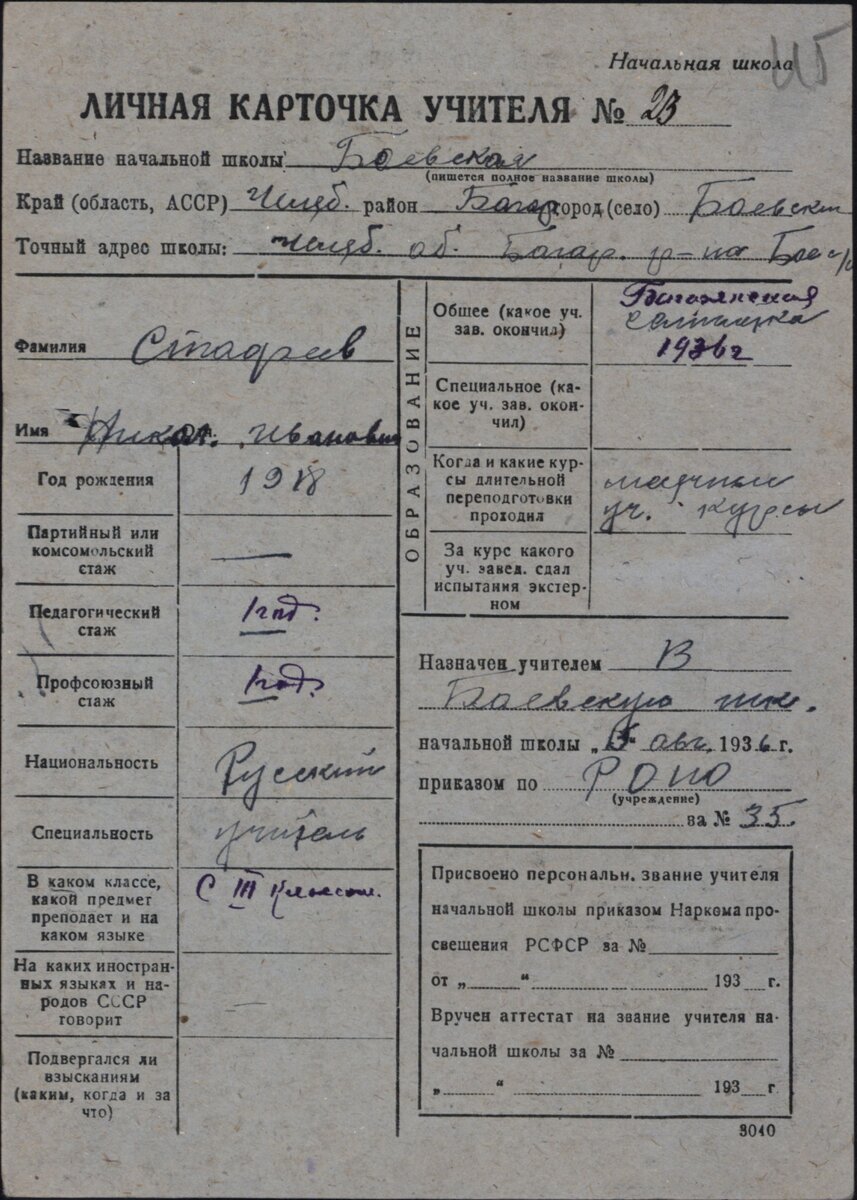 Начальная школа
ЛИЧНАЯ КАРТОЧКА УЧИТЕЛЯ № 23
Название начальной школы Боевская
(пишется полное название школы)
Край (область, АССР) Челяб. район Багар город (село) Боевск
Точный адрес школы: Челяб. об. Багар. р-на Бое с/с
Фамилия
Имя Никол. Иванович
Год рождения 1918
Партийный или комсомольский стаж —
Педагогический стаж 1 год.
Профсоюзный стаж 1 год.
Национальность Русский
Специальность учитель
В каком классе, какой предмет преподает и на каком языке С III классом.
На каких иностранных языках и народов СССР говорит —
Подвергался ли взысканиям (каким, когда и за что)
ОБРАЗОВАНИЕ
Общее (какое уч. зав. окончил) 1936 г
Специальное (какое уч. зав. окончил)
Когда и какие курсы длительной переподготовки проходил уч. курсы
За курс какого уч. завед. сдал испытания экстерном
Назначен учителем В
Боевскую шк.
начальной школы „15“ авг. 1936 г.
приказом по РОНО
(учреждение)
за № 35.
Присвоено персональн. звание учителя
начальной школы приказом Наркома про-
свещения РСФСР за №
от „ “ 193 г.
Вручен аттестат на звание учителя на-
чальной школы за №
„ “ 193 г.
3040